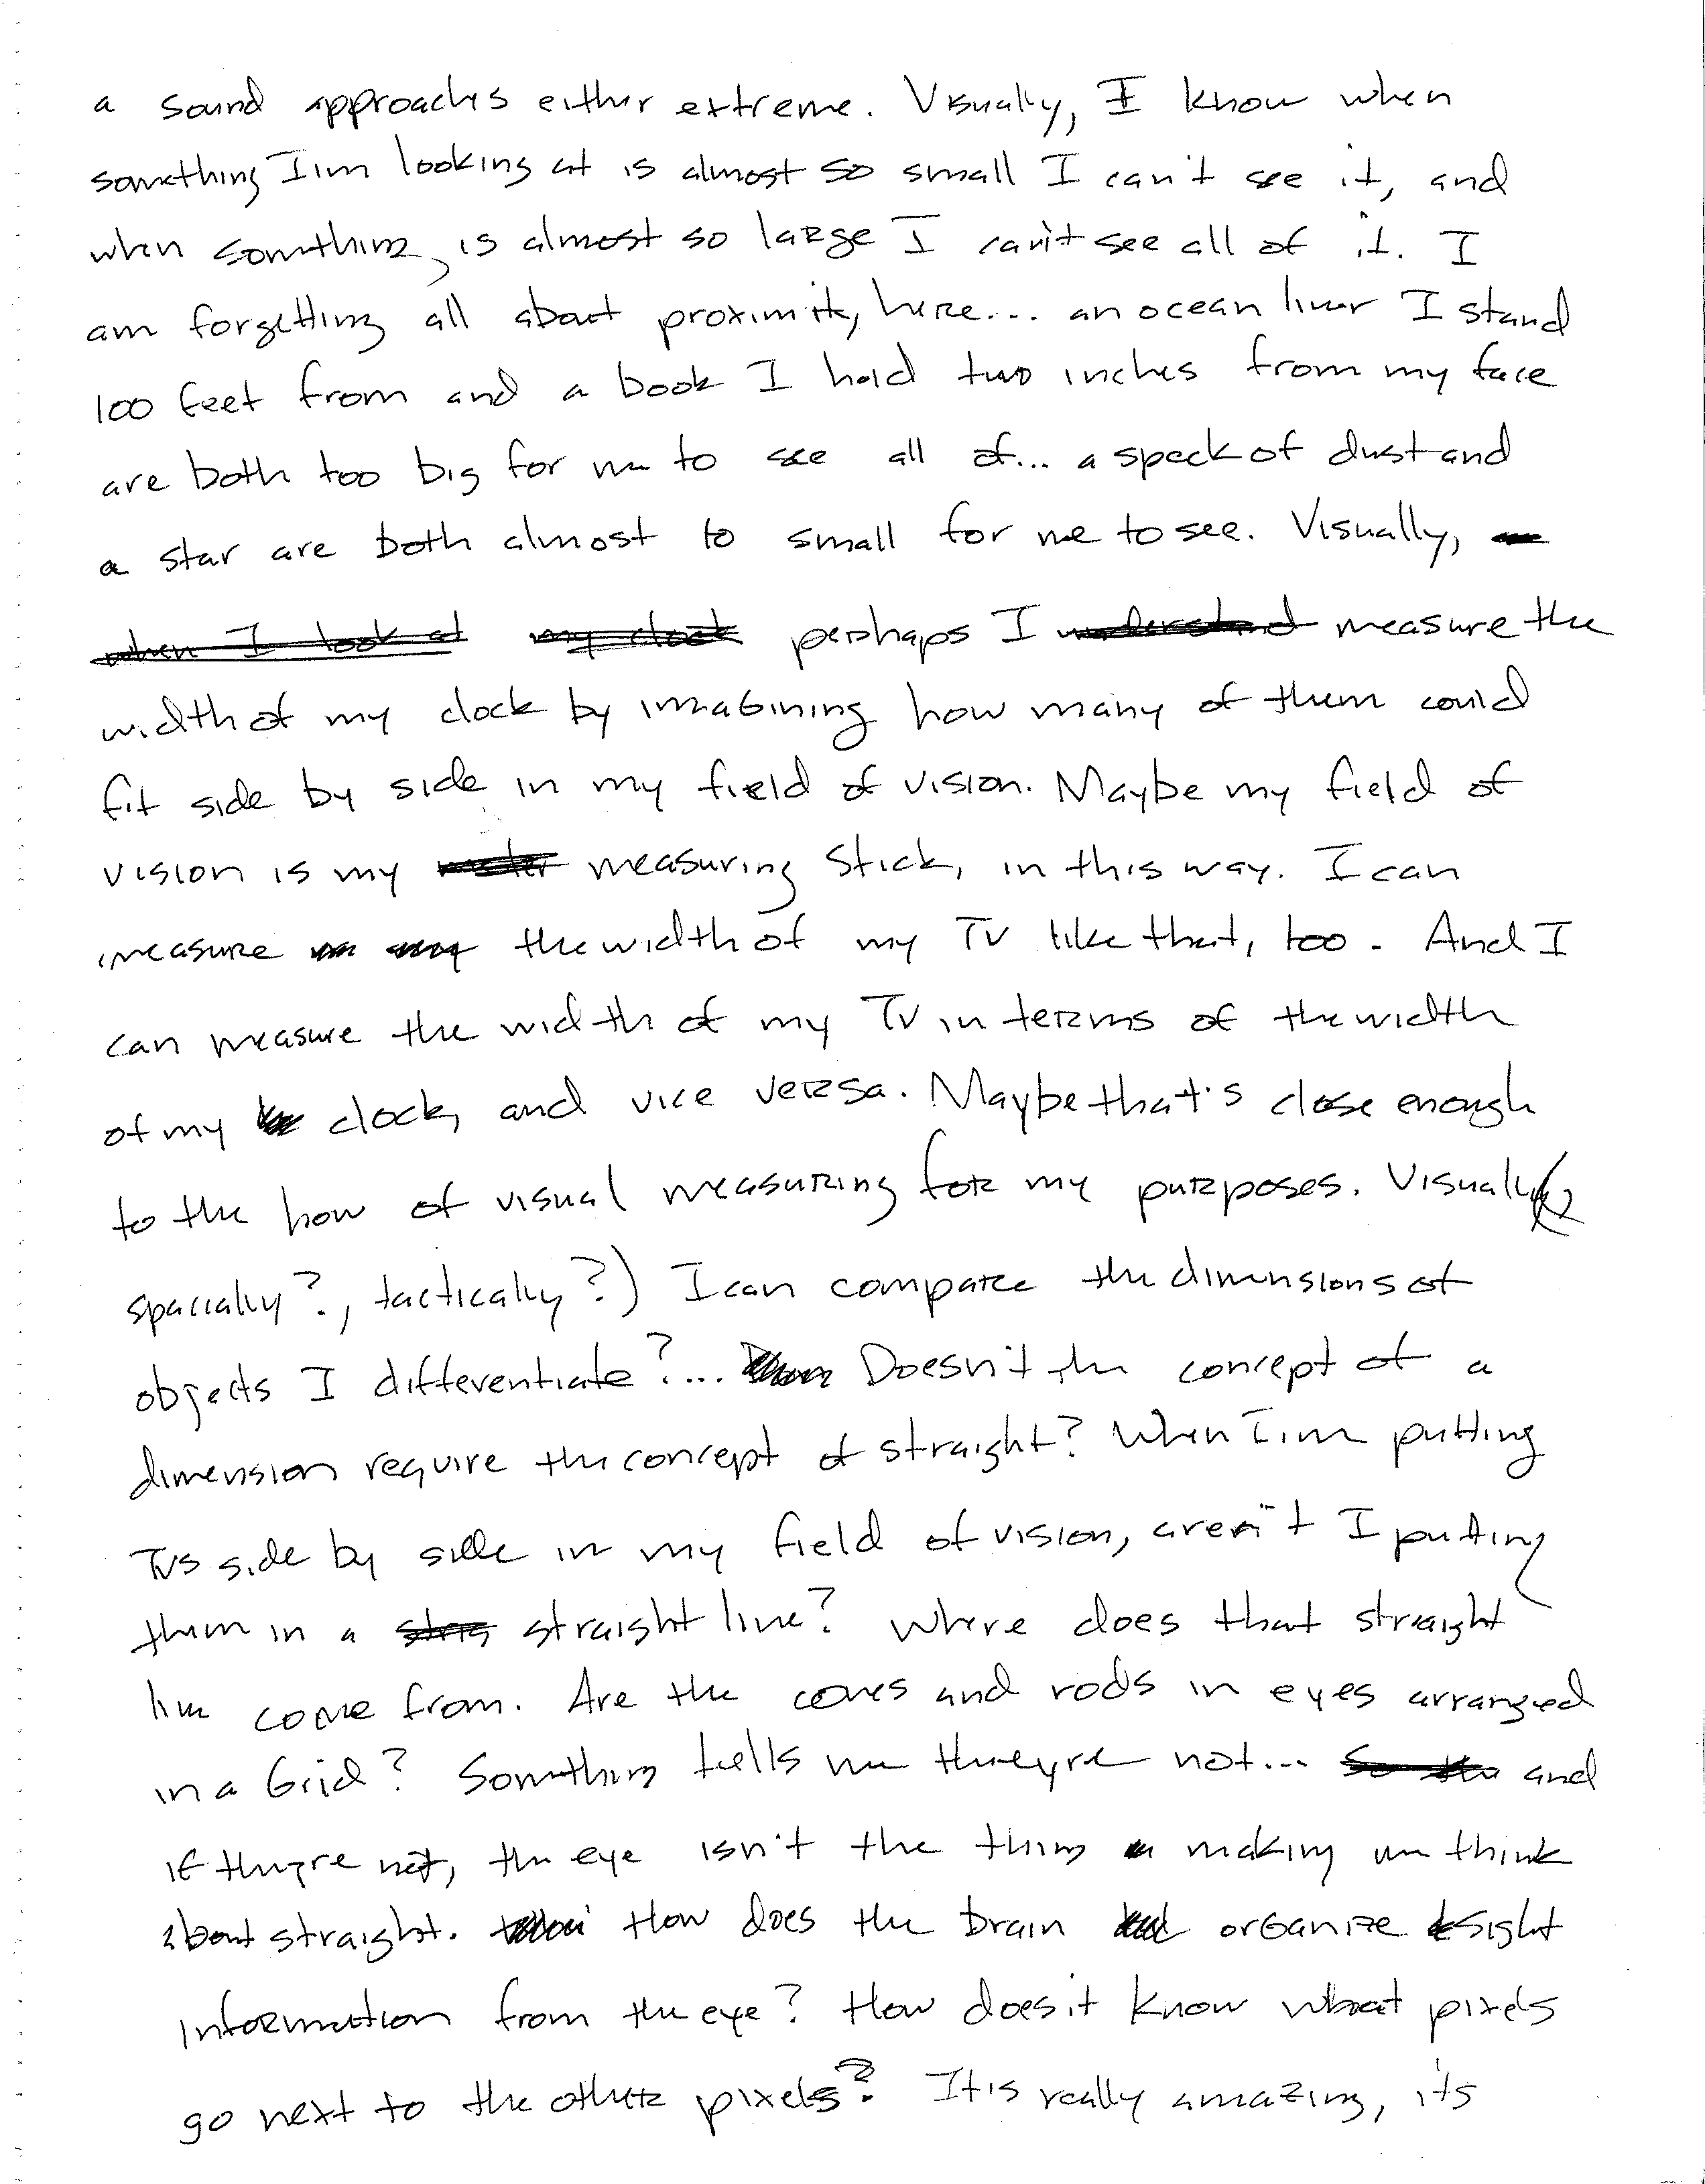 a sound approaches either extreme. Visually, I know when
something I'm looking at is almost so small I can't see it, and
when something is almost so large I can't see all of it. I
am forgetting all about proximity, here... an ocean liner I stand
100 feet from and a book I hold two inches from my face
are both too big for me to see all of... a speck of dust and
a star are both almost to small for me to see. Visually,
when I look at my clock perhaps I understand measure the
width of my clock by imagining how many of them could
fit side by side in my field of vision. Maybe my field of
vision is my measuring stick, in this way. I can
measure the width of my TV like that, too. And I
can measure the width of my TV in terms of the width
of my clock, and vice versa. Maybe that's close enough
to the how of visual measuring for my purposes. Visually (
spacially?, tactically?) I can compare the dimensions of
objects I differentiate?... Doesn't the concept of a
dimension require the concept of straight? When I'm putting
TVs side by side in my field of vision, aren't I putting
them in a straight line? Where does that straight
line come from. Are the cones and rods in eyes arranged
in a Grid? Something tells me theyre not... and
if they're not, the eye isn't the thing making me think
about straight. How does the brain organize sight
information from the eye? How does it know what pixels
go next to the other pixels? It is really amazing, it's